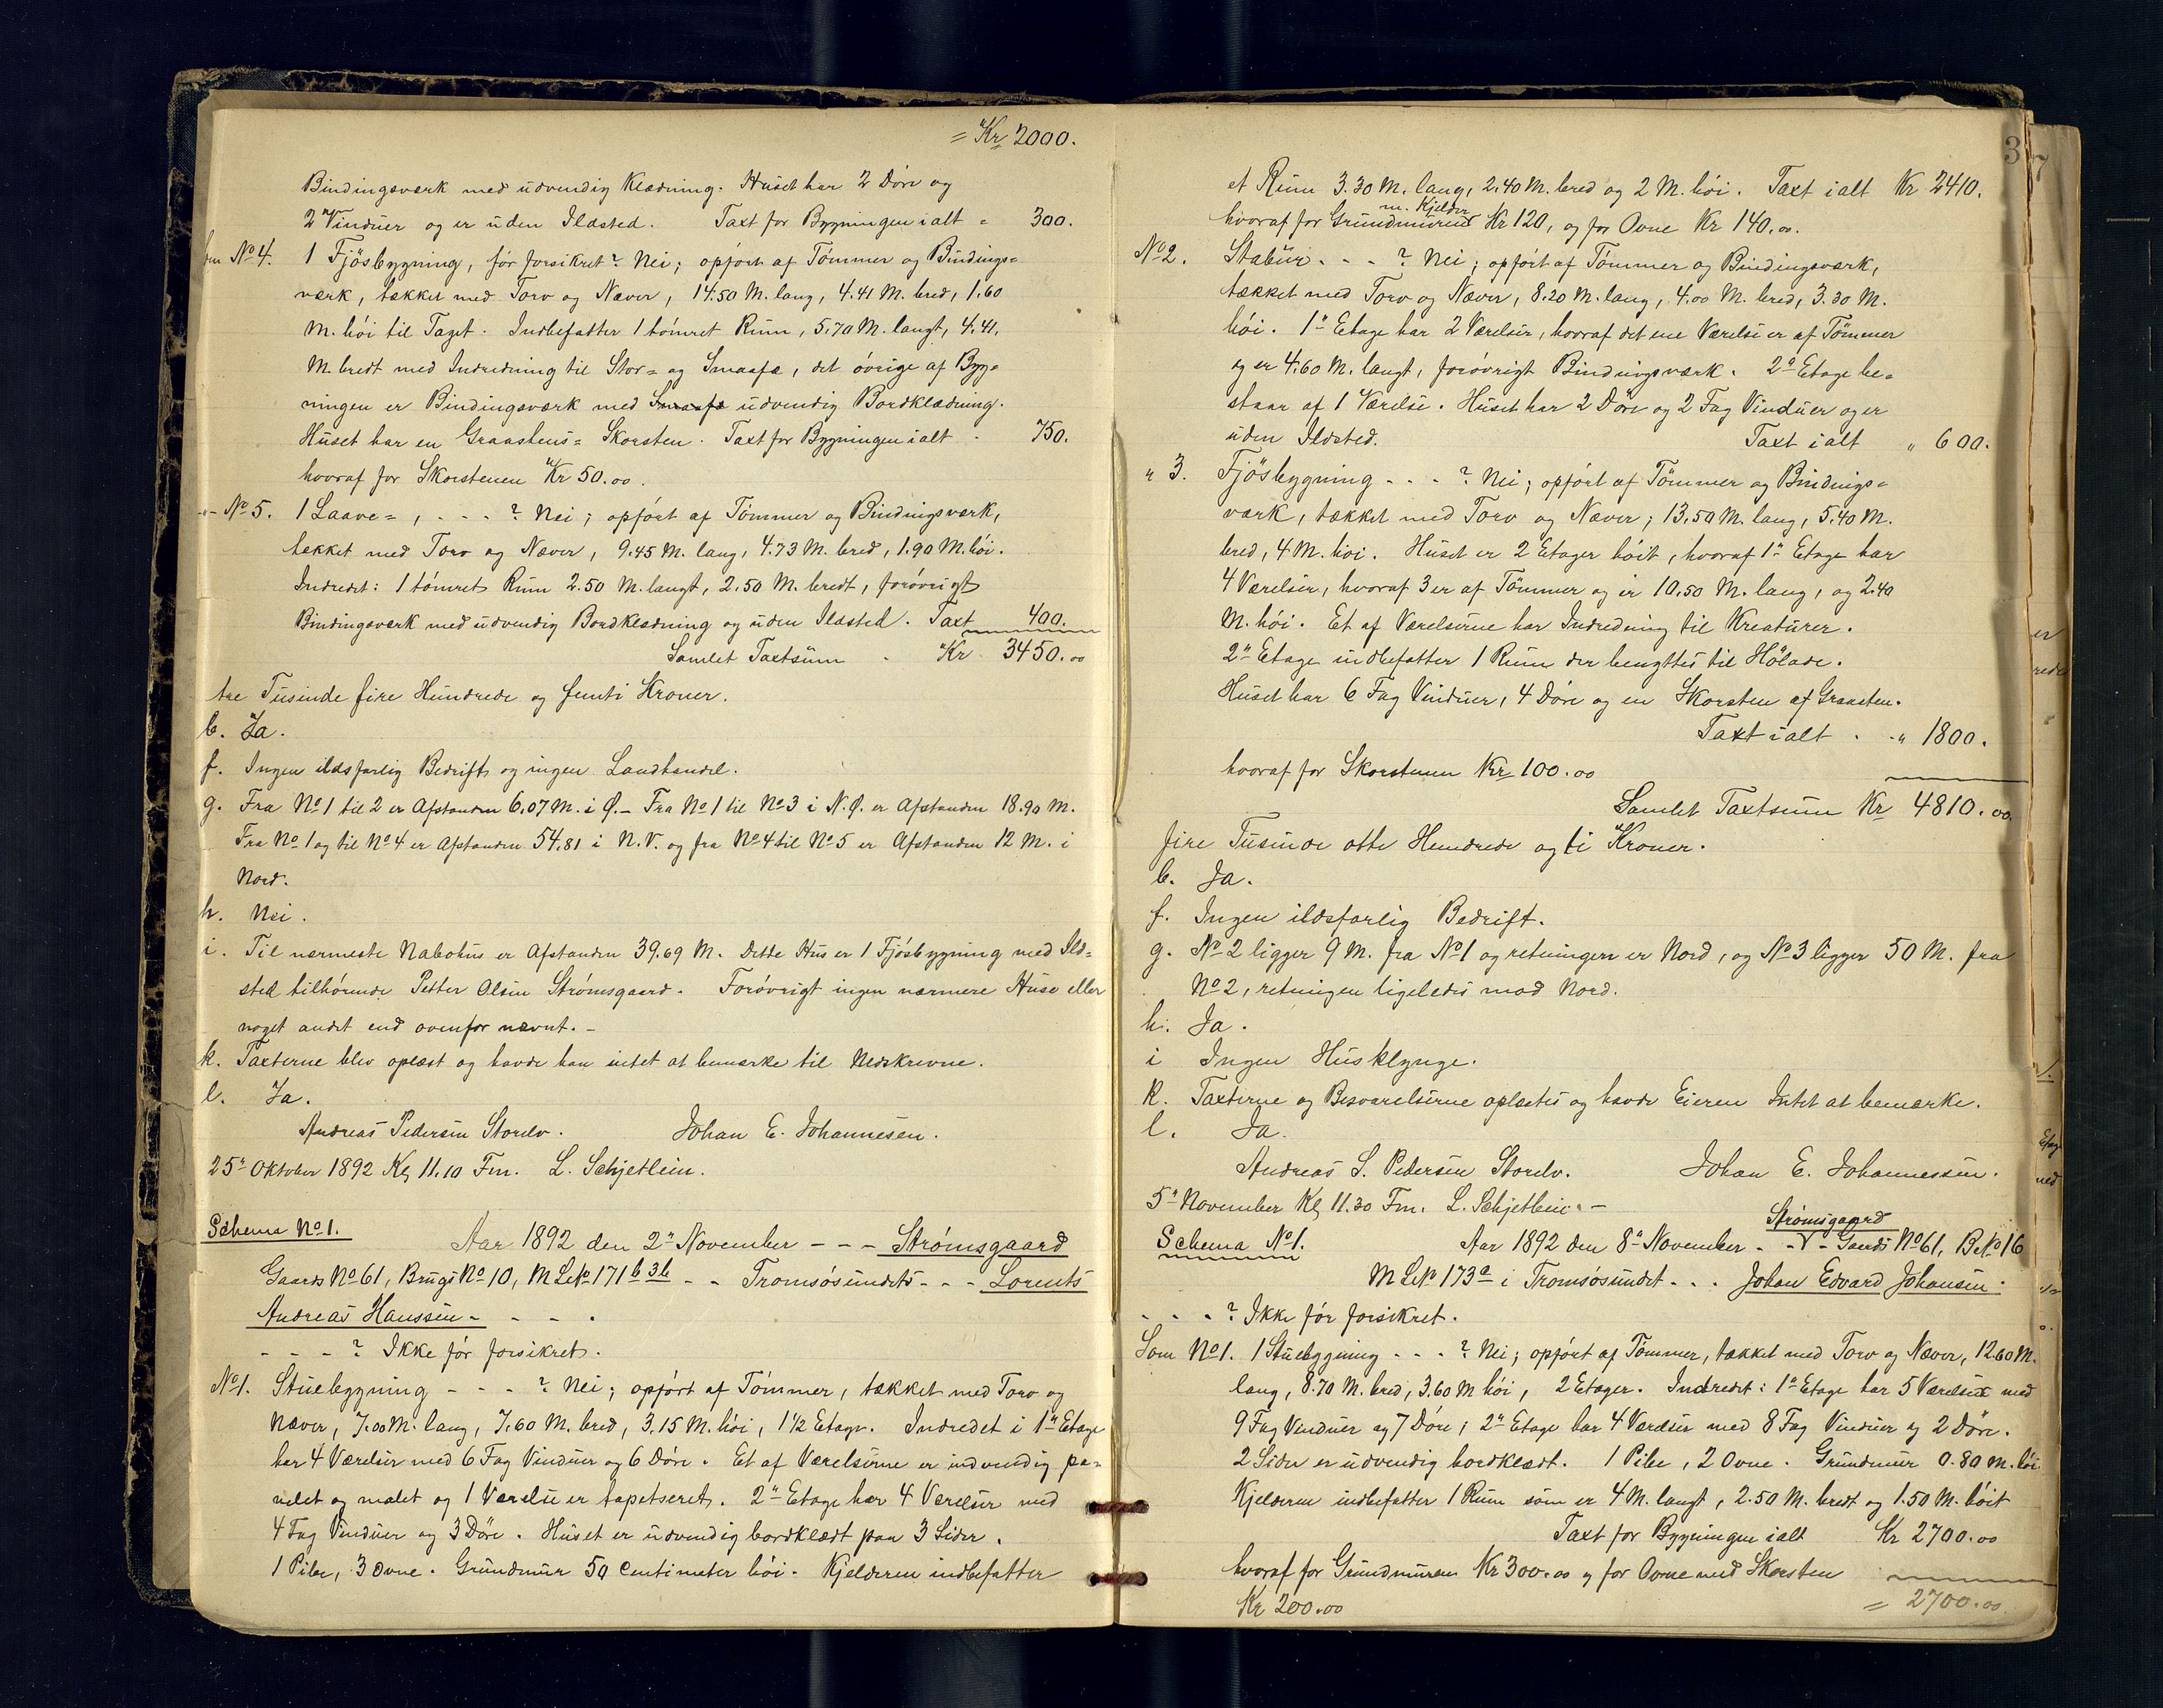 = Kr 2000.
Bindingsværk med udvendig Klædning. Huset har 2 Döre og
2 Vinduer og er uden Ildsted. Taxt for Bygningen ialt = 300.
No 4. 1 Fjösbygning, för forsikret? Nei; opfört af Tömmer og Bindings=
værk, tækket med Torv og Næver, 14.50 M. lang, 4.41 M. bred, 1.60
M. höi til Taget. Indbefatter 1 tömret Rum, 5.70 M. langt, 4.41,
M. bredt med Indredning til Stor= og Smaafæ, det övrige af Byg=
ningen er Bindingsværk med Smaafæ udvendig Bordklædning.
Huset har en Graastens= Skorsten. Taxt for Bygningen ialt - 750.
hvoraf for Skorstenen Kr 50.00.
-"- No 5. 1 Laave=, - - - ? Nei; opfört af Tömmer og Bindingsværk,
tækket med Torv og Næver, 9.45 M. lang, 4.73 M. bred, 1.90 M. höi.
Indredet: 1 tömret Rum 2.50 M. langt, 2.50 M. bredt, forövrigt
Bindingsværk med udvendig Bordklædning og uden Ildsted. Taxt 400.
Samlet Taxtsum . Kr 3450.00
tre Tusinde fire Hundrede og femti Kroner.
b. Ja.
f. Ingen ildsfarlig Bedrift og ingen Landhandel.
g. Fra No 1 til 2 er Afstanden 6.07 M. i Ø. - Fra No 1 til No 3 i N.Ø. er Afstanden 18.90 M.
Fra No 1 og til No 4 er Afstanden 54.81 i N.V. og fra No 4 til No 5 er Afstanden 12 M. i
Nord.
h. Nei.
i. Til nærmeste Nabohus er Afstanden 39.69 M. Dette Hus er 1 Fjösbygning med Ild=
sted tilhörende Petter Olsen Strömsgaard. Forövrigt ingen nærmere Huse eller
noget andet end ovenfor nævnt. -
k. Taxterne blev oplæst og havde han intet at bemærke til Nedskrevne.
l. Ja.
Andreas Pedersen Storelv. Johan E. Johannesen.
25" Oktober 1892 Kl 11.10 Fm. L. Schjetlein.
Schema No 1. Aar 1892 den 2" November - - - Strömsgaard
Gaards No 61, Brugs No 10, M L No 171 b 3 b - - Tromsösundets - - - Lorents
Andreas Hanssen - - - -
- - - ? Ikke för forsikret.
No 1. Stuebygning - - - ? Nei; opfört af Tömmer, tækket med Torv og
Næver, 7.00 M. lang, 7.60 M. bred, 3.15 M. höi, 1 1/2 Etage. Indredet i 1" Etage
har 4 Værelser med 6 Fag Vinduer og 6 Döre. Et af Værelserne er indvendig pa=
nelet og malet og 1 Værelse er tapetseret. 2" Etage har 4 Værelser med
4 Fag Vinduer og 3 Döre. Huset er udvendig bordklædt paa 3 Sider.
1 Pibe, 3 Ovne. Grundmur 50 Centimeter höi. Kjelderen indbefatter
3
et Rum 3.30 M. lang, 2.40 M. bred og 2 M. höi. Taxt ialt Kr 2410.
m. Kjelder
hvoraf for Grundmuren Kr 120, og for Ovne Kr 140.00.
No 2. Stabur - - - ? Nei; opfört af Tömmer og Bindingsværk,
tækket med Torv og Næver, 8.20 M. lang, 4.00 M. bred, 3.30 M.
höi. 1" Etage har 2 Værelser, hvoraf det ene Værelse er af Tömmer
og er 4.60 M. langt, forövrigt Bindingsværk. 2" Etage be=
staar af 1 Værelse. Huset har 2 Döre og 2 Fag Vinduer og er
uden Ildsted. Taxt ialt " 600.
" 3. Fjösbygning - - - ? Nei; opfört af Tömmer og Bindings=
værk, tækket med Torv og Næver; 13.50 M. lang, 5.40 M.
bred, 4 M. höi. Huset er 2 Etager höit, hvoraf 1" Etage har
4 Værelser, hvoraf 3 er af Tömmer og er 10.50 M. lang, og 2.40
M. höi. Et af Værelserne har Indredning til Kreaturer.
2" Etage indbefatter 1 Rum der benyttes til Hölade.
Huset har 6 Fag Vinduer, 4 Döre og en Skorsten af Graasten.
Taxt ialt . . " 1800.
hvoraf for Skorstenen Kr 100.00
Samlet Taxtsum Kr 4810.00
fire Tusinde otte Hundrede og ti Kroner.
b. Ja.
f. Ingen ildsfarlig Bedrift.
g. No 2 ligger 9 M. fra No 1 og retningen er Nord, og No 3 ligger 50 M. fra
No 2, retningen ligeledes mod Nord.
h. Ja.
i Ingen Husklynge.
k. Taxterne og Besvarelserne oplæstes og havde Eieren Intet at bemærke.
l. Ja.
Andreas S. Pedersen Storelv. Johan E. Johannessen.
5" November Kl 11.30 Fm. L. Schjetlein. -
Strömsgaard
Schema No 1. Aar 1892 den 8" November - - V - Gaards No 61, B No 16
M L No 173 a i Tromsösundet - - - Johan Edvard Johansen.
- - - ? Ikke för forsikret.
Som No 1. 1 Stuebygning - - - ? Nei; opfört af Tömmer, tækket med Torv og Næver, 12.60 M.
lang, 8.70 M. bred, 3.60 M höi, 2 Etager. Indredet: 1" Etage har 5 Værelser med
9 Fag Vinduer og 7 Döre; 2" Etage har 4 Værelser med 8 Fag Vinduer og 2 Döre.
2 Sider er udvendig bordklædt. 1 Pibe, 2 Ovne. Grundmur 0.80 M. höi
Kjelderen indbefatter 1 Rum som er 4 M. langt, 2.50 M. bredt og 1.50 M. höit
Taxt for Bygningen ialt Kr 2700.00
hvoraf for Grundmuren Kr 300.00 og for Ovne med Skorsten
Kr 200.00 = 2700.00